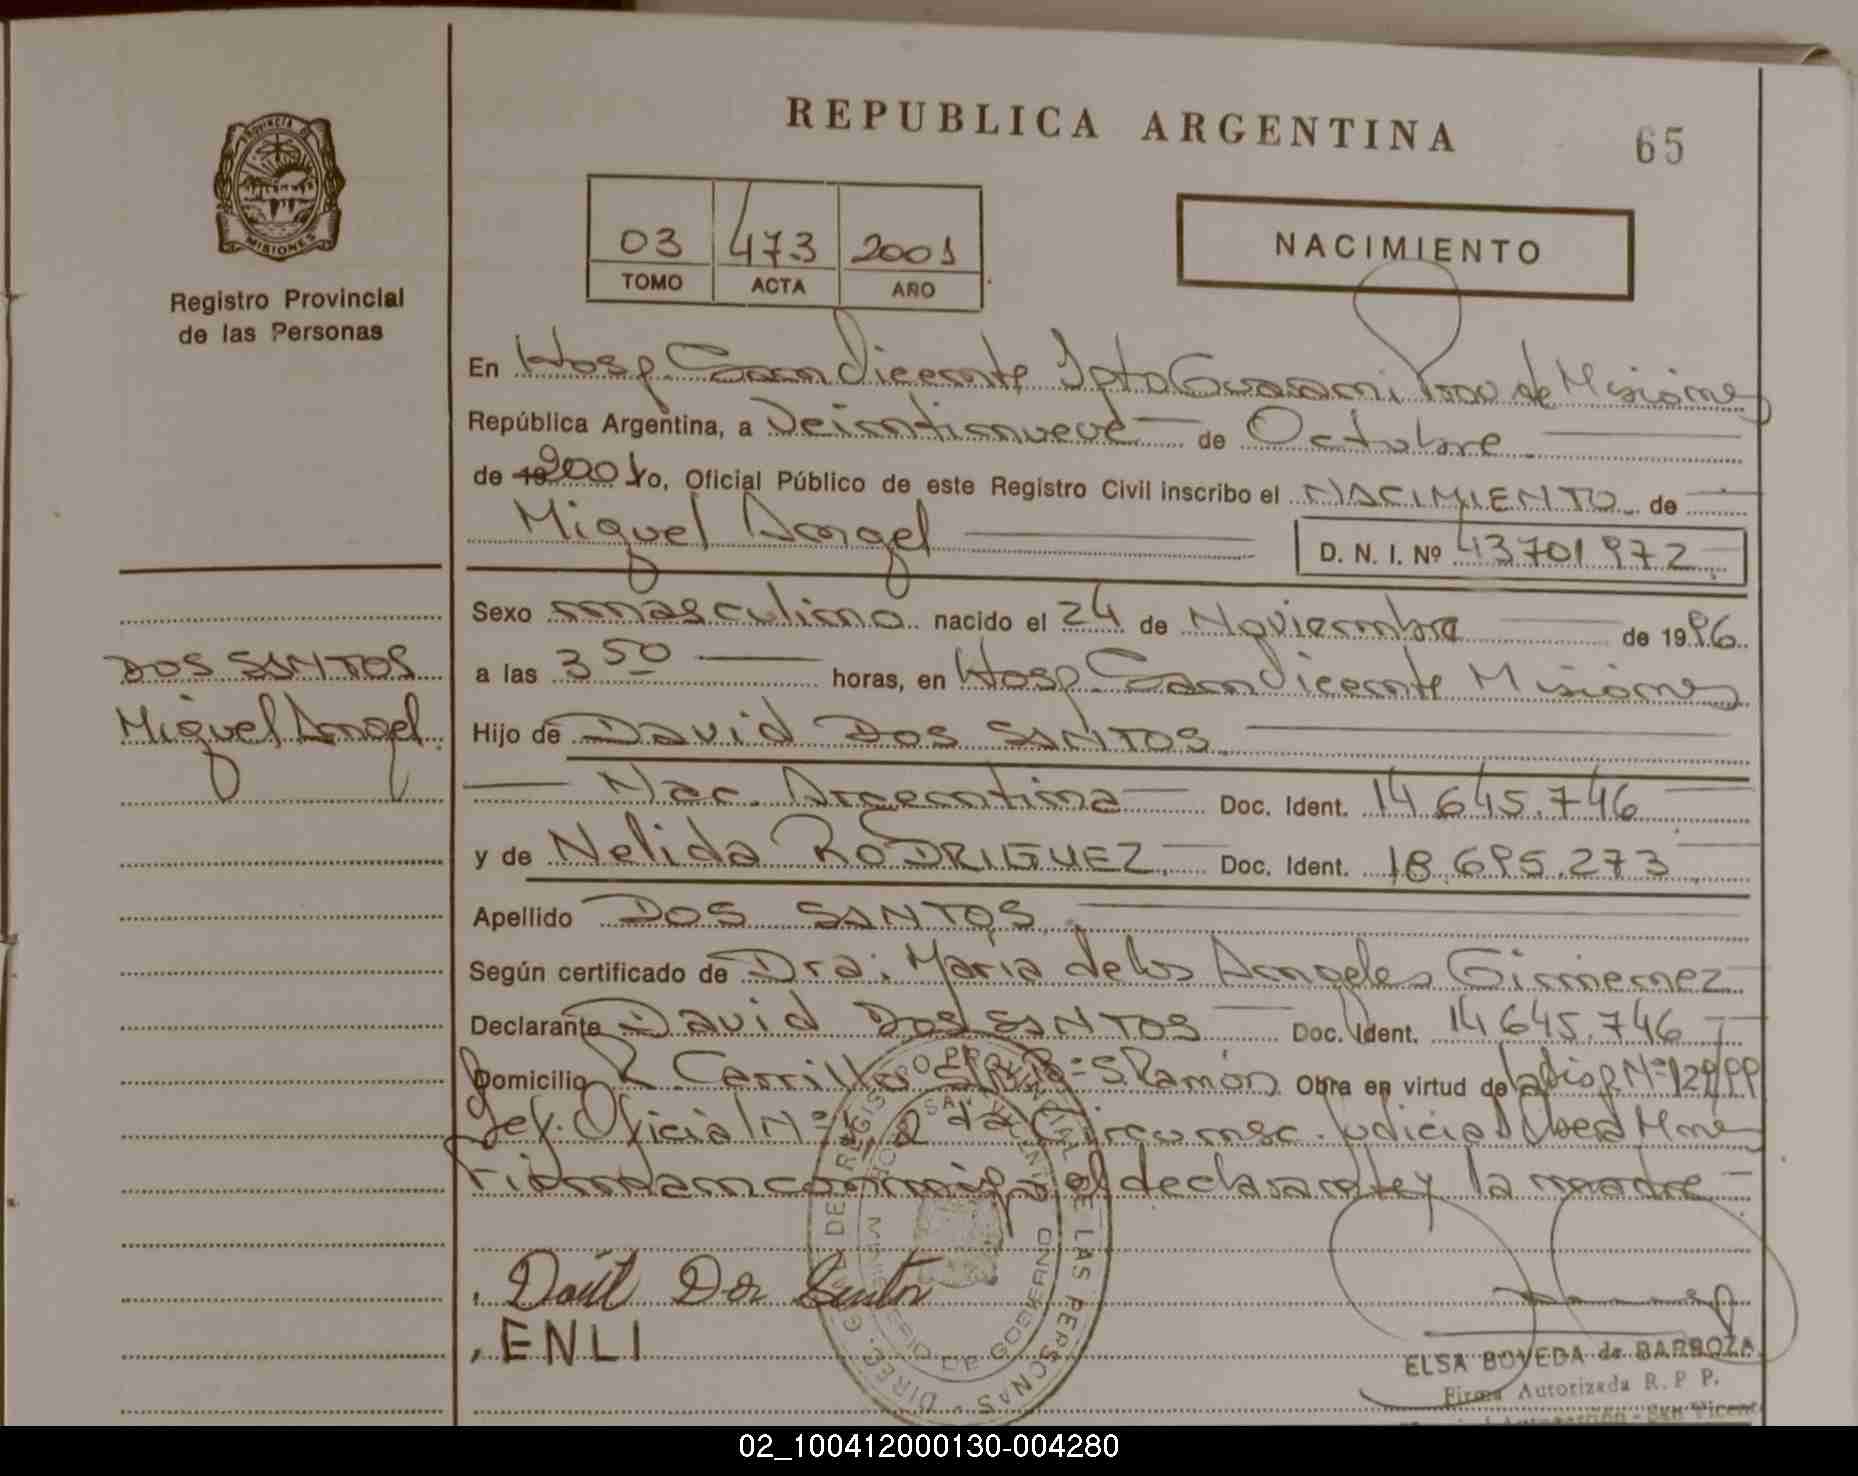 REPUBLICA ARGENTINA
65
PROVINCIA DE
MISIONES
Registro Provincial
de las Personas
03 473 2001
TOMO ACTA AÑO
NACIMIENTO
En Hosp. San Vicente Dpto Guarani Prov de Misiones
República Argentina, a Veintinueve de Octubre
de 19 2001 Yo, Oficial Público de este Registro Civil inscribo el NACIMIENTO de
Miguel Angel
D. N. I. Nº 43701972
Sexo masculino nacido el 24 de Noviembre de 1996
DOS SANTOS
Miguel Angel
a las 3 50 horas, en Hosp. San Vicente Misiones
Hijo de David DOS SANTOS
Nac. Argentina Doc. Ident. 14.645.746
y de Nelida RODRIGUEZ Doc. Ident. 18.695.273
Apellido DOS SANTOS
Según certificado de Dra. Maria de los Angeles Gimenez
Declarante David DOS SANTOS Doc. Ident. 14645.746
Domicilio R. Carrillo S. Ramón Obra en virtud de la Disp. Nº 129/99
Def. Oficial Nº 1, 2da Circunsc. Judicial Obera Mnes
Firman conmigo el declarante y la madre
Dos Santos
ENLI
DIREC. GRAL. DE REGISTRO PROVINCIAL DE LAS PERSONAS
MINISTERIO DE GOBIERNO
ELSA BOVEDA de BARBOZA
Firma Autorizada R. P. P.
San Vicente
02_100412000130-004280